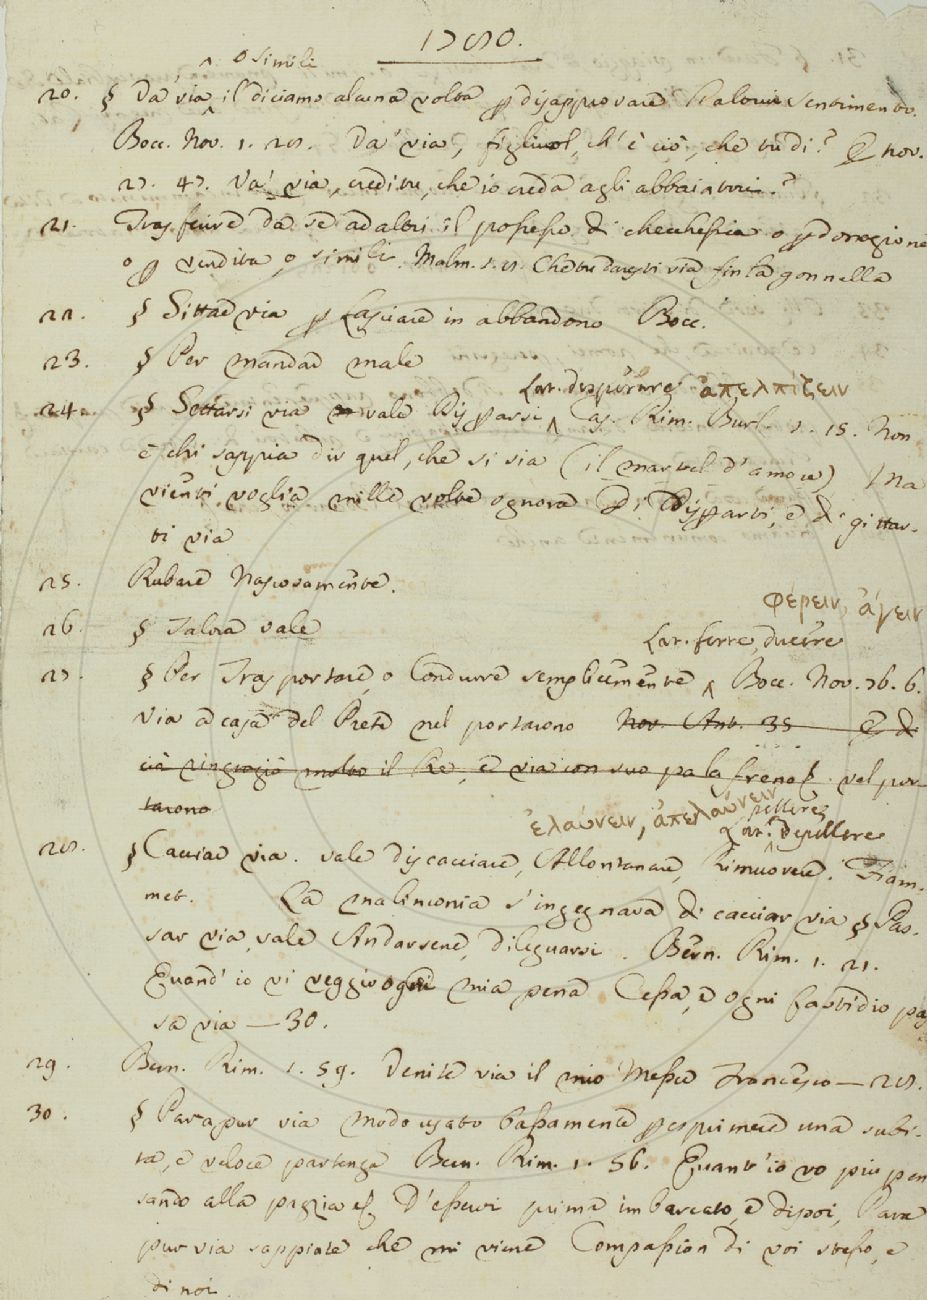 1780.
o simili
20. § Da' via il diciamo alcuna volta p disapprovare l'altrui sentimento.
Bocc. Nov. 1. 28. Da' via, figliuol, ch'è ciò, che tu di? E nov.
27. 47. Va' via, credi tu, che io creda agli abbaiatori?
21. Trasferire da se ad altri il possesso di checchessia o p donagione
o p vendita, o simili. Malm. Che tu daresti via fin la gonnella
22. § Gittar via p Lasciare in abbandono Bocc.
23. § Per mandar male
Lat. desperare ἀπελπίζειν
24. § Gettarsi via vale Disperarsi Cas. Rim. Burl. 1. 15. Non
è chi sappia dir quel, che si sia (il martel d'amore) Ma
vienti voglia mille volte ognora Di disperarti, e di gittar-
ti via
25. Rubare Nascosamente.
φέρειν, ἄγειν
26. § Talora vale
Lat. ferre, ducere
27. § Per Trasportare, o Condurre semplicemente Bocc. Nov. 76. 6.
Via a casa del Prete nel portarono Nov. Ant. 35 E di
ciò ringraziò molto il Re, e via con suo palafreno vel por-
tarono
ἐλαύνειν, ἀπελαύνειν pellere,
Lat. depellere
28. § Cacciar via. vale discacciare, Allontanare, Rimuovere. Fiam-
met. La malinconia s'ingegnava di cacciar via § Pas-
sar via, vale Andarsene, dileguarsi. Bern. Rim. 1. 21.
Quand'io vi veggio ogni mia pena Cessa, e ogni fastidio pas
sa via — 30.
29. Bern. Rim. 1. 59. Venite via il mio Messer Francesco — 28.
30. § Para pur via modo usato bassamente p esprimere una subi-
ta, e veloce partenza Bern. Rim. 1. 56. Quant'io vo più pen
sando alla pazzia D'esservi prima imbarcato, e dipoi, Para
pur via sappiate che mi viene Compassion di voi stesso, e
di noi.